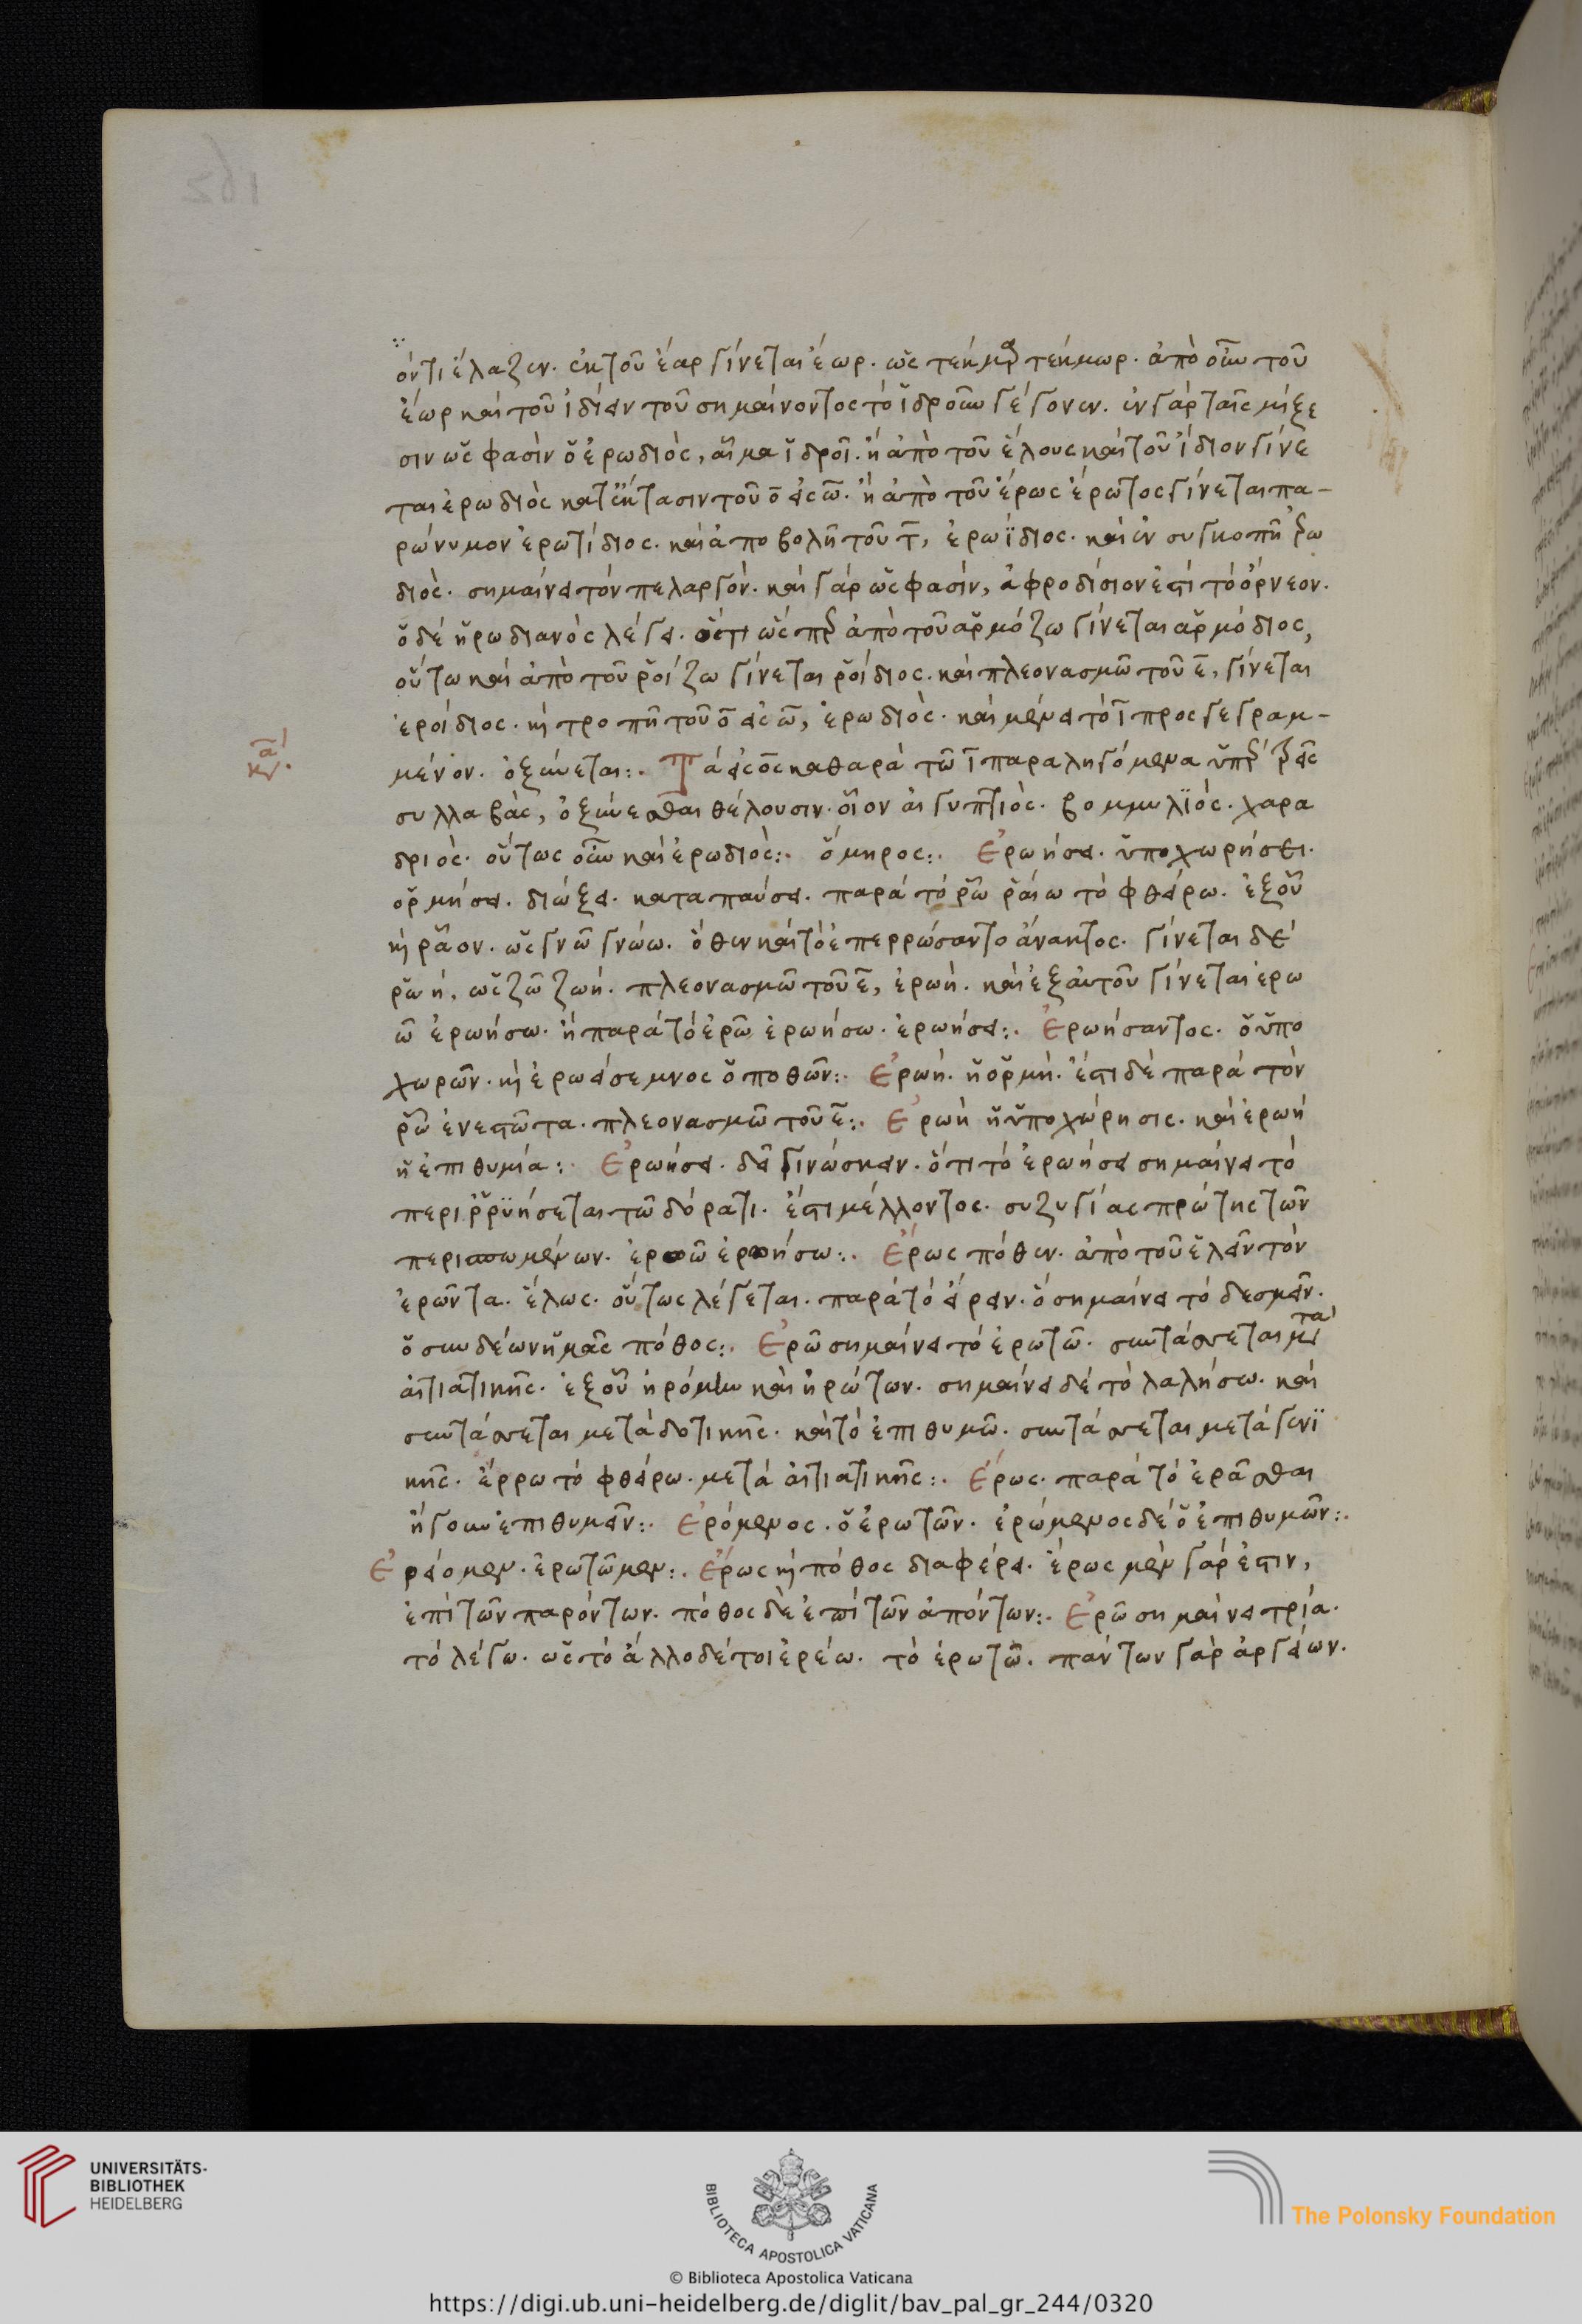 162
όντι ἔλαζεν. ἐκ τοῦ ἔαρ γίνεται ἔωρ. ὡς τέκμαρ τέκμωρ. ἀπὸ οὖν τοῦ
ἔωρ καὶ τοῦ ἰδίειν τοῦ σημαίνοντος τὸ ἱδροῦν γέγονεν. ἐν γὰρ ταῖς μίξε
σιν ὥς φασὶν ὁ ἐρωδιὸς, αἷμα ἱδροῖ. ἢ ἀπὸ τοῦ ἕλους καὶ τοῦ ἴδιον γίνε
ται ἐρωδιὸς κατ' ἔκτασιν τοῦ ο εἰς ω. ἢ ἀπὸ τοῦ ἔρως ἔρωτος γίνεται πα-
ρώνυμον ἐρωτίδιος. καὶ ἀποβολῆ τοῦ τ, ἐρωΐδιος. καὶ ἐν συγκοπῆ ἐρω
διός. σημαίνει τὸν πελαργόν. καὶ γάρ ὥς φασὶν, ἀφροδίσιον ἐστὶ τὸ ὄρνεον.
ὁ δὲ ἡρωδιανὸς λέγει. ὅτι ὥς περ ἀπὸ τοῦ ἁρμόζω γίνεται ἁρμόδιος,
οὕτω καὶ ἀπὸ τοῦ ῥοίζω γίνεται ῥοίδιος. καὶ πλεονασμῶ τοῦ ε, γίνεται
ἐροίδιος. κὴ τροπῆ τοῦ ο εἰς ω, ἐρωδιός. καὶ μένει τὸ ι προσγεγραμ-
κα.
μένον. ὀξύνεται:. Τὰ εἰς ος καθαρὰ τῶ ι παραληγόμενα ὑπὲρ τρεῖς
συλλαβὰς, ὀξύνεσθαι θέλουσιν. οἷον αἰγυπτιός. βομμυλϊός. χαρα
δριός. οὕτως οὖν καὶ ἐρωδιός:. ὅμηρος:. Ἐρωήσει. ὑποχωρήσει.
ὁρμήσει. διώξει. καταπαύσει. παρὰ τὸ ῥῶ ῥαίω τὸ φθείρω. ἐξοῦ
κὴ ῥᾶον. ὡς γνῶ γνώω. ὅθεν καὶ τὸ ἐπερρώσαντο ἄνακτος. γίνεται δὲ
ῥωή, ὡς ζῶ ζωή. πλεονασμῶ τοῦ ε, ἐρωή. καὶ ἐξ αὐτοῦ γίνεται ἐρω
ῶ ἐρωήσω. ἢ παρὰ τὸ ἐρῶ ἐρωήσω. ἐρωήσει:. Ἐρωήσαντος. ὁ ὑπο
χωρῶν. κὴ ἐρωείσεμνος ὁ ποθῶν:. Ἐρωή. ἡ ὁρμή. ἔστι δὲ παρὰ τὸν
ῥῶ ἐνεστῶτα. πλεονασμῶ τοῦ ε:. Ἐρωὴ ἡ ὑποχώρησις. καὶ ἐρωή
ἡ ἐπιθυμία:. Ἐρωήσει. δεῖ γινώσκειν. ὅτι τὸ ἐρωήσει σημαίνει τὸ
περιῤῥϋήσεται τῶ δόρατι. ἔστι μέλλοντος. συζυγίας πρώτης τῶν
περισπωμένων. ἐρωῶ ἐρωήσω:. Ἔρως πόθεν. ἀπὸ τοῦ ἑλεῖν τὸν
ἐρῶντα. ἕλως. οὕτως λέγεται. παρὰ τὸ εἴρειν. ὃ σημαίνει τὸ δεσμεῖν.
ὁ συνδέων ἡμᾶς πόθος:. Ἐρῶ σημαίνει τὸ ἐρωτῶ. συντάσσεται μετὰ
αἰτιατικῆς. ἐξοῦ ἠρόμην καὶ ἠρώτων. σημαίνει δὲ τὸ λαλήσω. καὶ
συντάσσεται μετὰ δοτικῆς. καὶ τὸ ἐπιθυμῶ. συντάσσεται μετὰ γενϊ
κῆς. ἔρρω τὸ φθείρω. μετὰ αἰτιατικῆς:. Ἔρως. παρὰ τὸ ἐρᾶσθαι
ἤγουν ἐπιθυμεῖν:. Ἐρόμενος. ὁ ἐρωτῶν. ἐρώμενος δὲ ὁ ἐπιθυμῶν:.
Ἐρείομεν. ἐρωτῶμεν:. Ἔρως κὴ πόθος διαφέρει. ἔρως μὲν γάρ ἐστιν,
ἐπὶ τῶν παρόντων. πόθος δὲ ἐπὶ τῶν ἀπόντων:. Ἐρῶ σημαίνει τρία.
τὸ λέγω. ὡς τὸ ἄλλο δέ τοι ἐρέω. τὸ ἐρωτῶ. πάντων γὰρ ἀργείων.
UNIVERSITÄTS-
BIBLIOTHEK
HEIDELBERG
BIBLIOTECA APOSTOLICA VATICANA
The Polonsky Foundation
© Biblioteca Apostolica Vaticana
https://digi.ub.uni-heidelberg.de/diglit/bav_pal_gr_244/0320